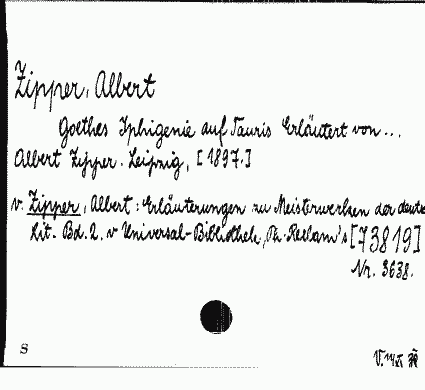 Zipper, Albert
Goethes Iphigenie auf Tauris Erläutert von...
Albert Zipper. Leipzig, [1897.]
v. Zipper, Albert: Erläuterungen zu Meisterwerken der deuts
Lit. Bd. 2. v Universal-Bibliothek, Ph. Reclam's [73819]
Nr. 3638.
S
V.